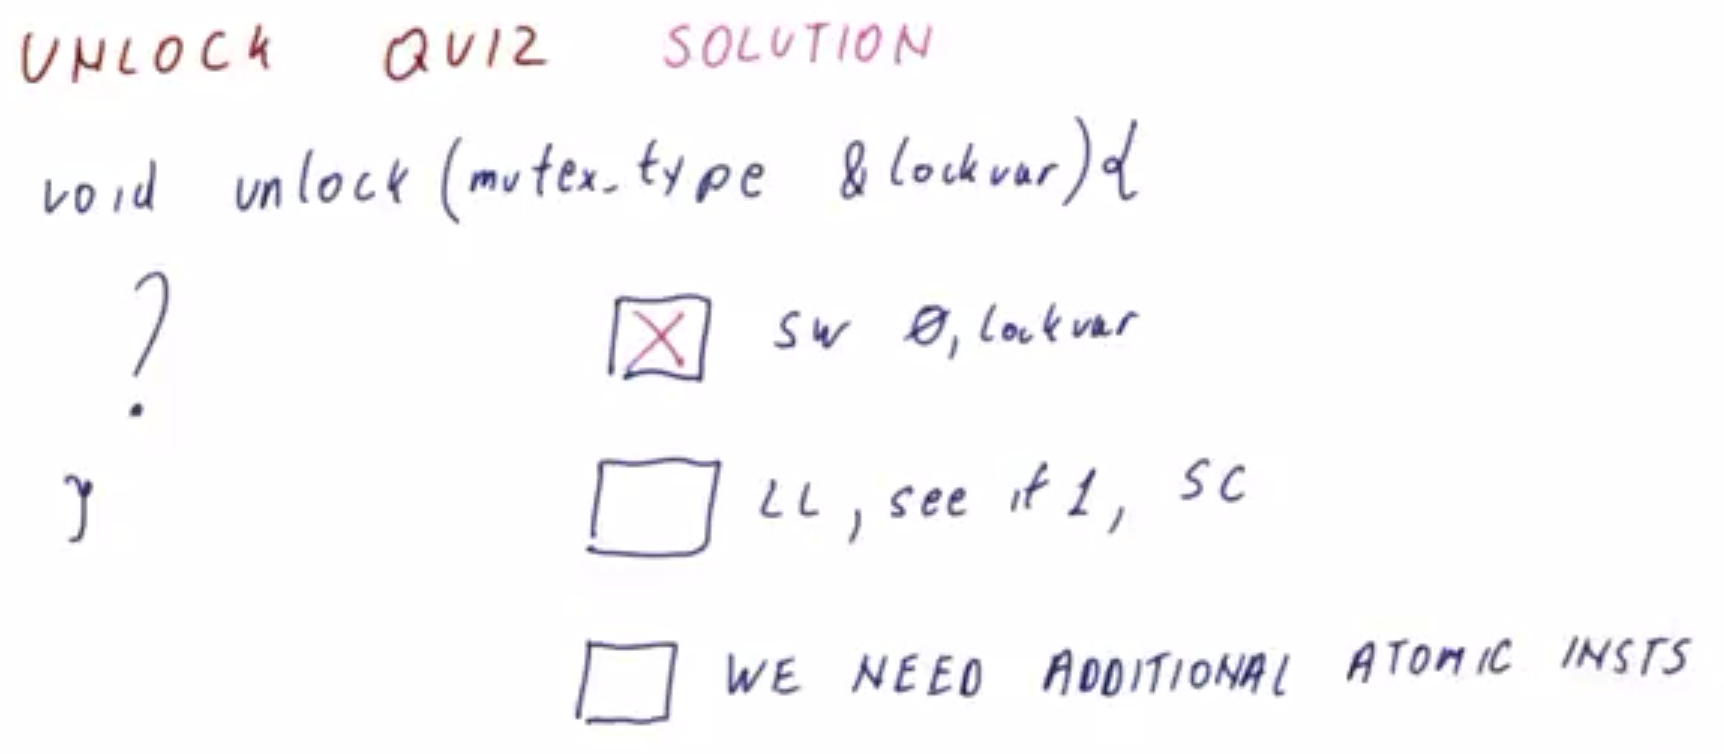 UNLOCK QUIZ SOLUTION
void unlock (mutex_type &lockvar){
?
SW 0, lockvar
}
LL, see if 1, SC
WE NEED ADDITIONAL ATOMIC INSTS